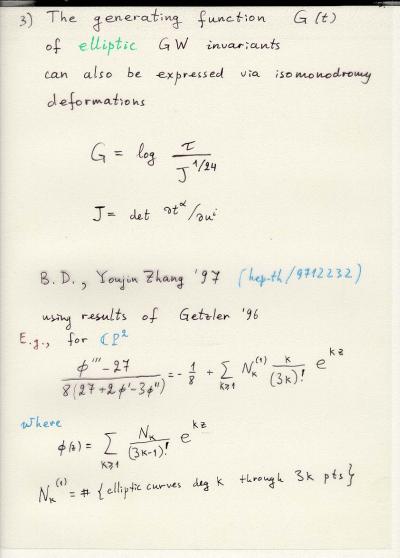 3) The generating function G(t)
of elliptic GW invariants
can also be expressed via isomonodromy
deformations
G = log τ / J^{1/24}
J = det ∂t^α/∂u^i
B.D., Youjin Zhang '97 (hep-th/9712232)
using results of Getzler '96
E.g., for ℂP²
(ϕ''' - 27) / (8(27+2ϕ'-3ϕ'')) = - 1/8 + ∑_{k≥1} N_k^{(1)} k/(3k)! e^{kz}
where
ϕ(z) = ∑_{k≥1} N_k/(3k-1)! e^{kz}
N_k^{(1)} = # {elliptic curves deg k through 3k pts}